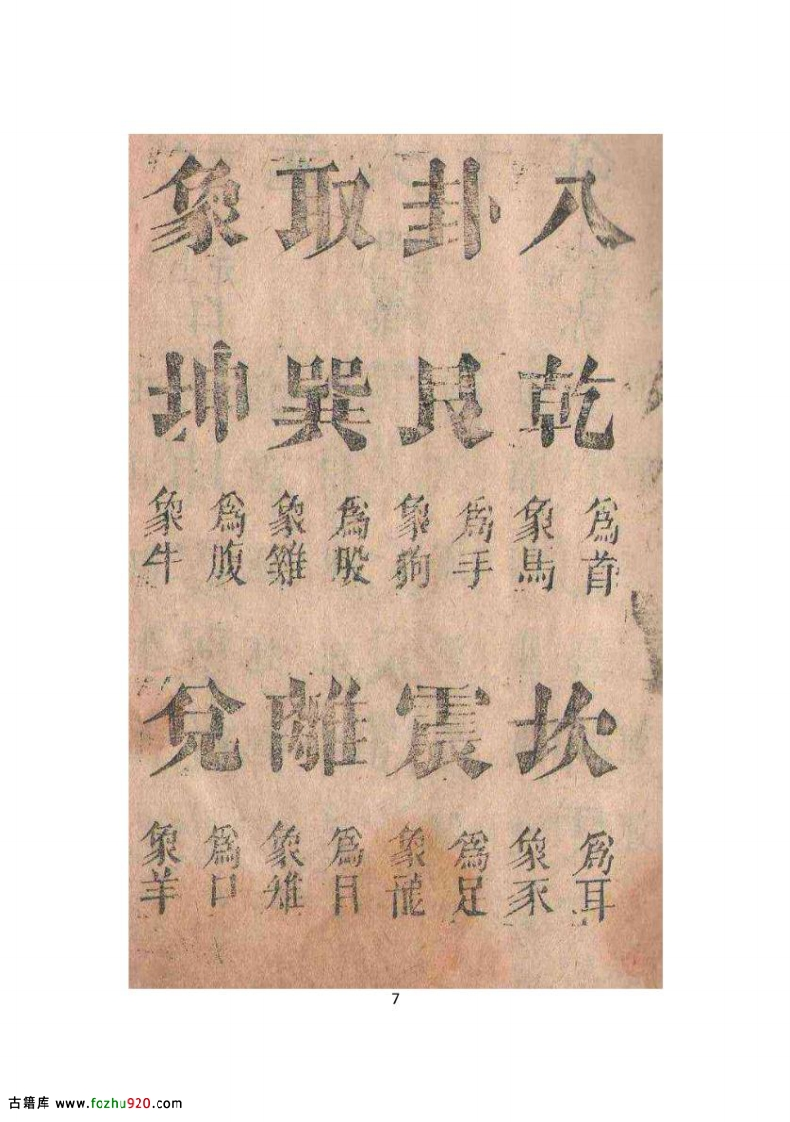 八卦取象
乾
為首
象馬
坎
為耳
象豕
艮
為手
象狗
震
為足
象龍
巽
為股
象雞
離
為目
象雉
坤
為腹
象牛
兌
為口
象羊
7
古籍库 www.fozhu920.com